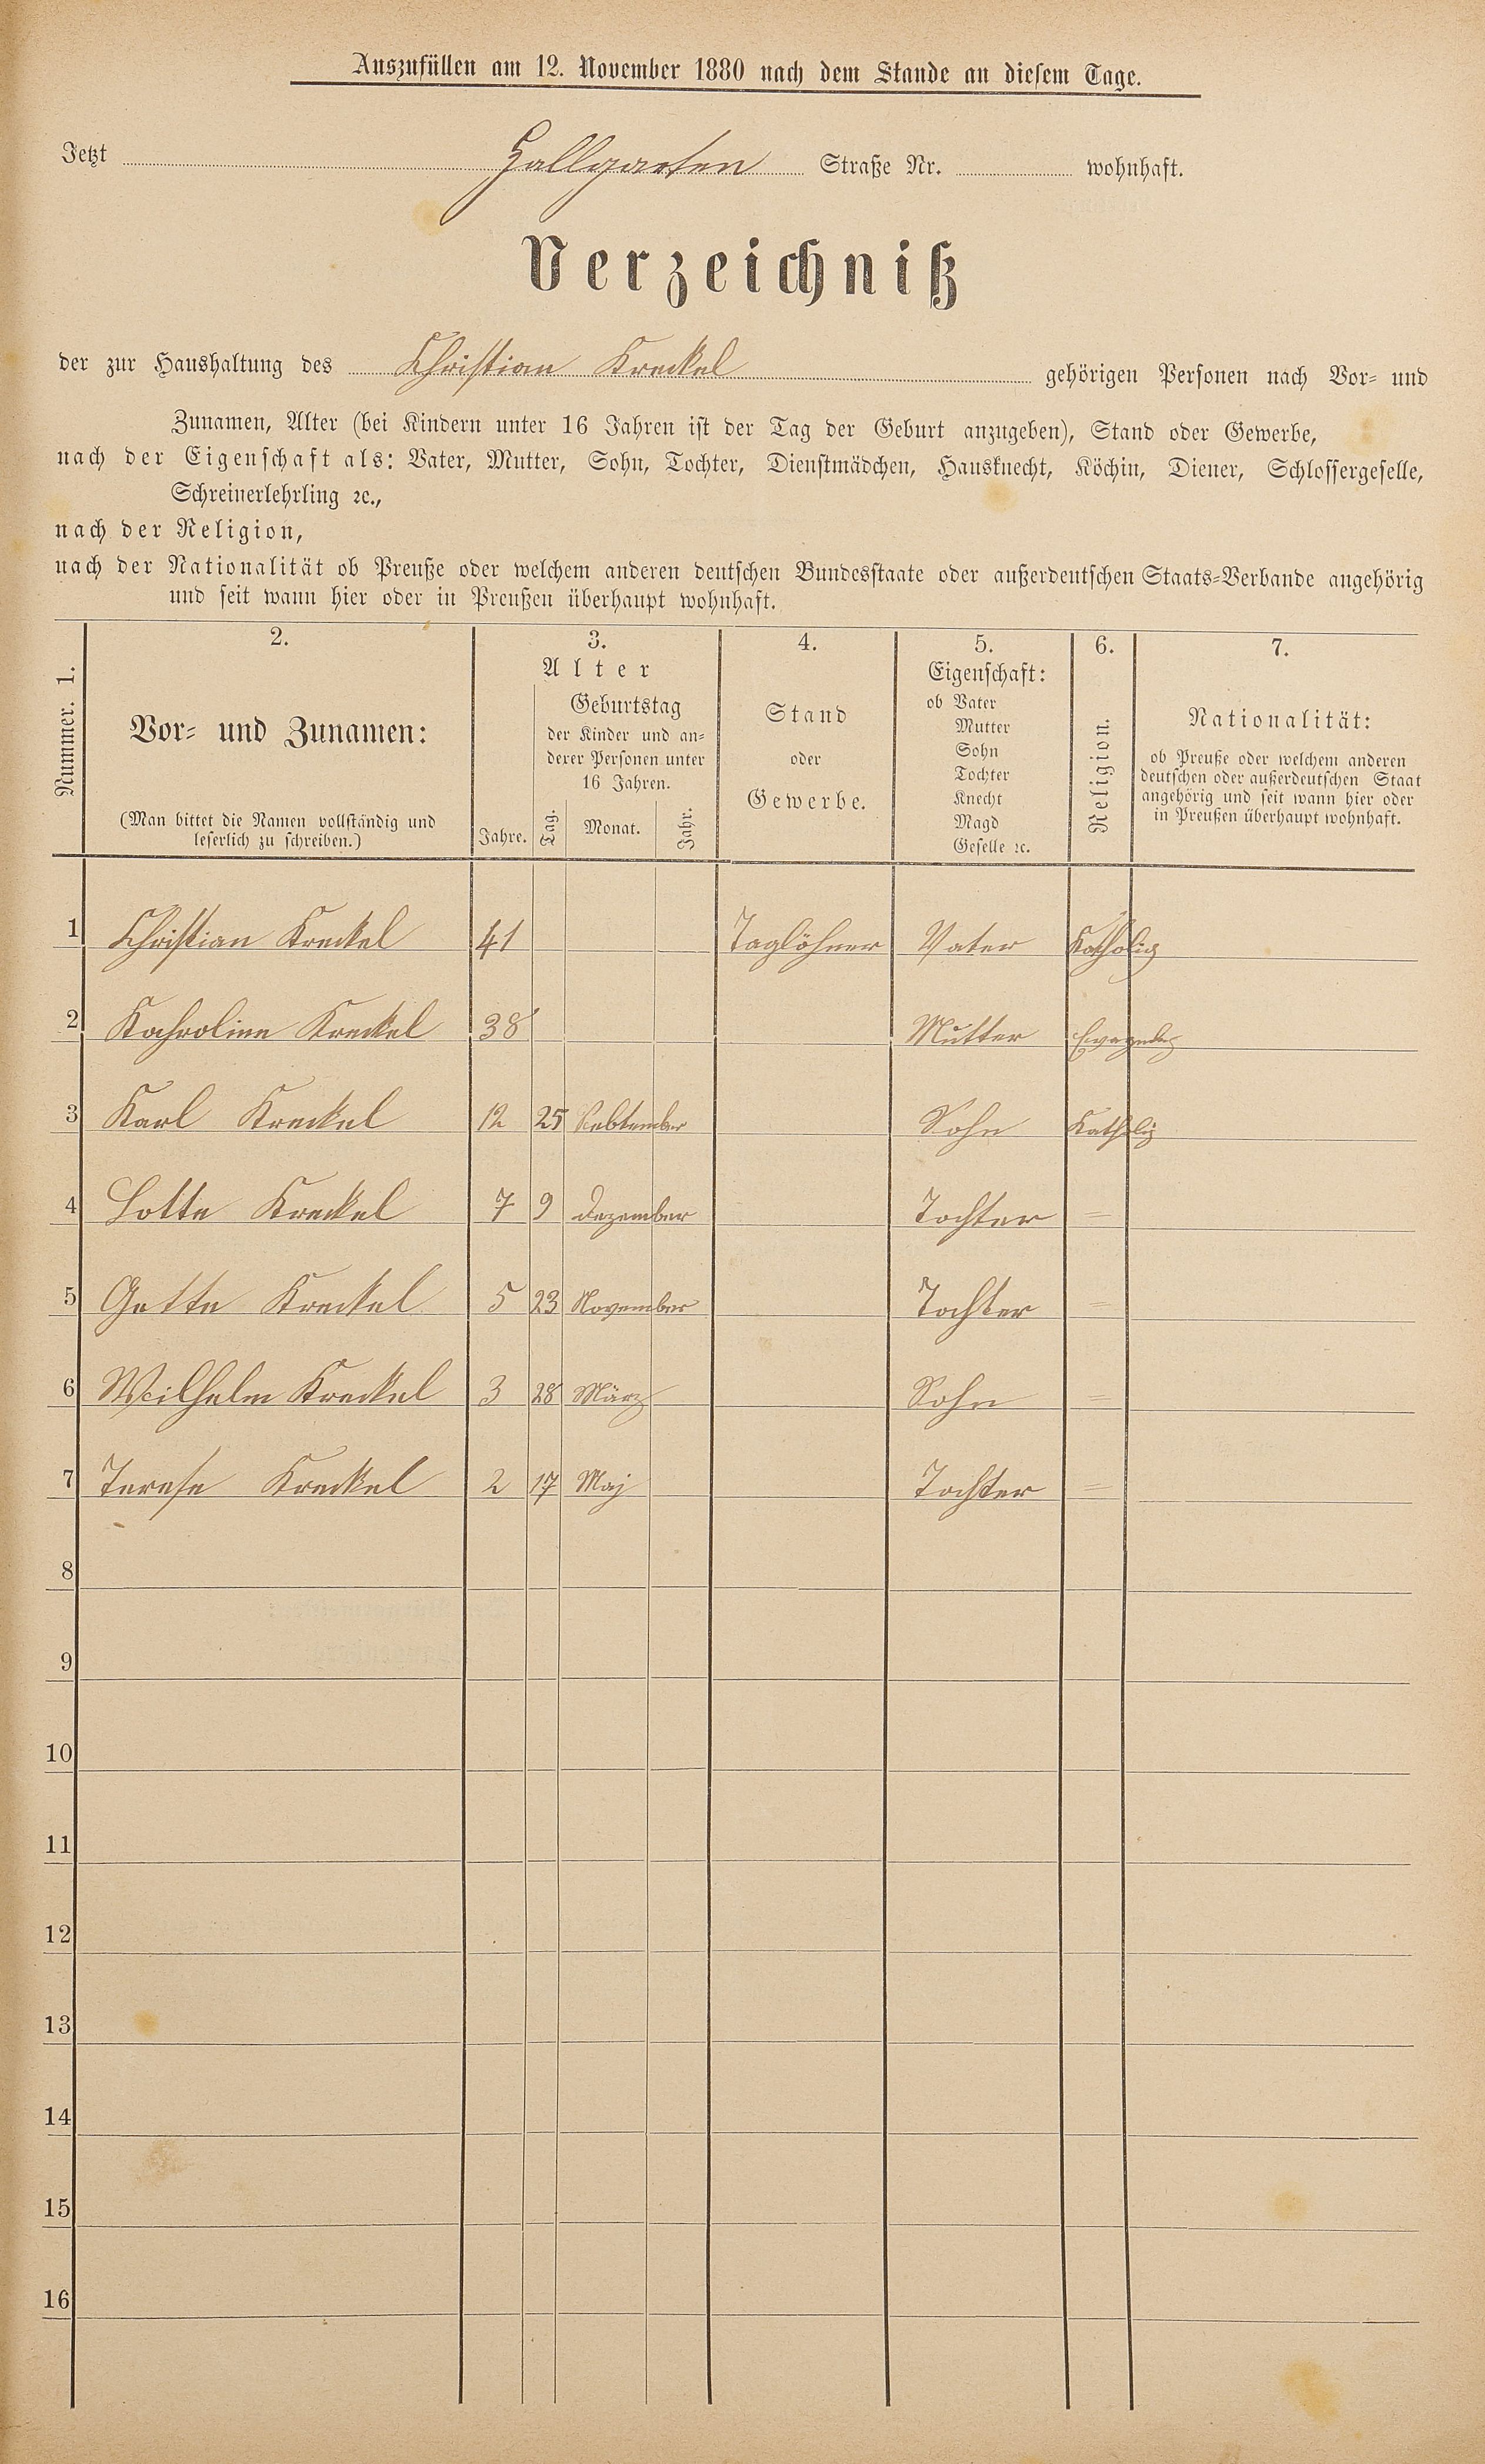 Auszufüllen am 12. November 1880 nach dem Stande an diesem Tage.
Jetzt Hallgarten Straße Nr. wohnhaft.
Verzeichniß
der zur Haushaltung des Christian Kreckel gehörigen Personen nach Vor- und
Zunamen, Alter (bei Kindern unter 16 Jahren ist der Tag der Geburt anzugeben), Stand oder Gewerbe,
nach der Eigenschaft als: Vater, Mutter, Sohn, Tochter, Dienstmädchen, Hausknecht, Köchin, Diener, Schlossergeselle,
Schreinerlehrling ꝛc.,
nach der Religion,
nach der Nationalität ob Preuße oder welchem anderen deutschen Bundesstaate oder außerdeutschen Staats-Verbande angehörig
und seit wann hier oder in Preußen überhaupt wohnhaft.
Nummer. 1.
2.
Vor- und Zunamen:
(Man bittet die Namen vollständig und
leserlich zu schreiben.)
3.
Alter
Jahre.
Geburtstag
der Kinder und an-
derer Personen unter
16 Jahren.
Tag. Monat. Jahr.
4.
Stand
oder
Gewerbe.
5.
Eigenschaft:
ob Vater
Mutter
Sohn
Tochter
Knecht
Magd
Geselle ꝛc.
6.
Religion.
7.
Nationalität:
ob Preuße oder welchem anderen
deutschen oder außerdeutschen Staat
angehörig und seit wann hier oder
in Preußen überhaupt wohnhaft.
1 Christian Kreckel 41 Taglöhner Vater Katholig
2 Kahroline Kreckel 38 Mutter
3 Karl Kreckel 12 25 Sebtember Sohn Katholig
4 Lotte Kreckel 7 9 Dezember Tochter =
5 Gette Kreckel 5 23 November Tochter =
6 Wilhelm Kreckel 3 28 März Sohn =
7 Terese Kreckel 2 17 Maj Tochter =
8
9
10
11
12
13
14
15
16